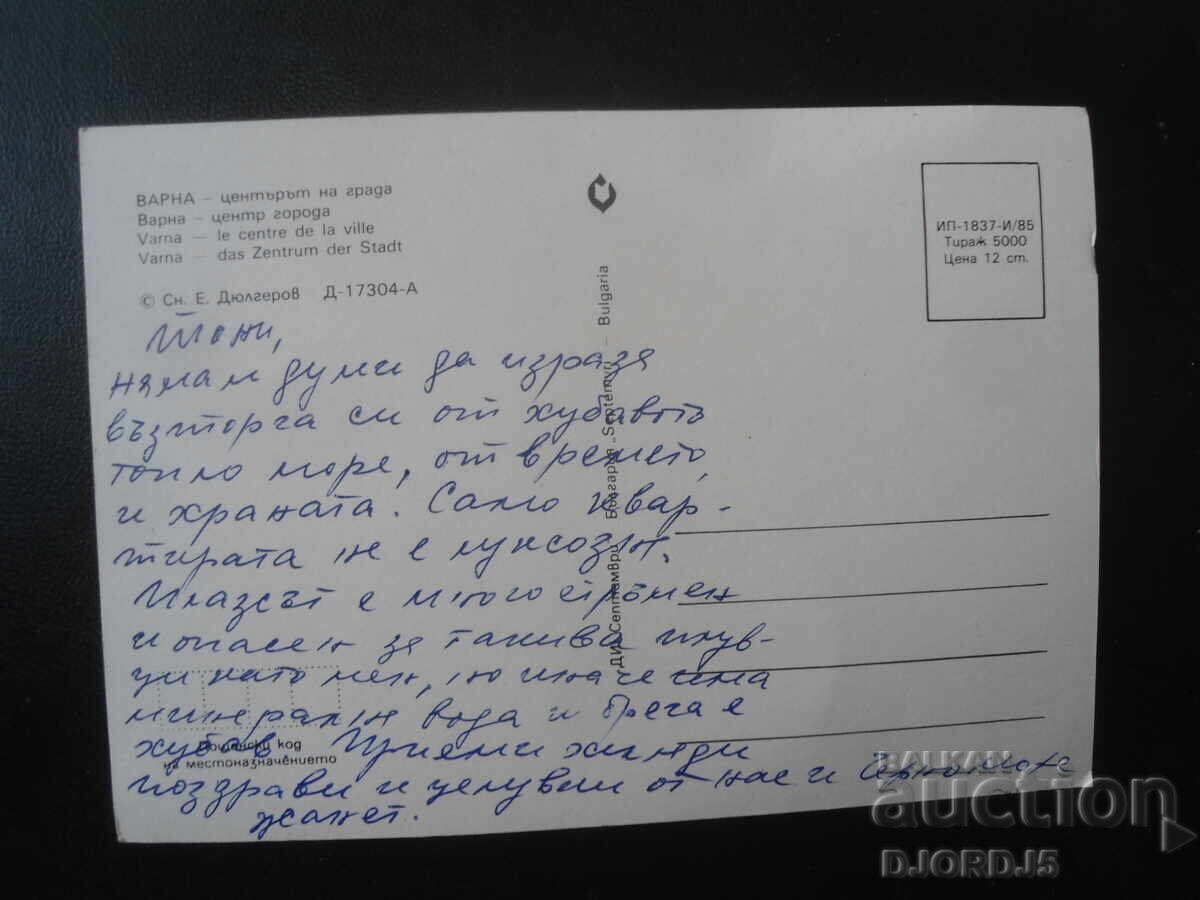 ВАРНА – центърът на града
Варна – центр города
Varna — le centre de la ville
Varna — das Zentrum der Stadt
© Сн. Е. Дюлгеров Д-17304-А
ИП-1837-И/85
Тираж 5000
Цена 12 ст.
ДИ „Септември" България „Septemvri" Bulgaria
Тони,
нямам думи да изразя
възторга си от хубавото
топло море, от времето
и храната. Само квар-
тирата не е луксозна.
Плажът е много стръмен
и опасен за такива плув-
ци като мен, но иначе има
минерална вода и брега е
хубав. Приеми хиляди
поздрави и целувки от нас и
Жанет.
Пощенски код
на местоназначението
BALKAN
auction
DJORDJ5